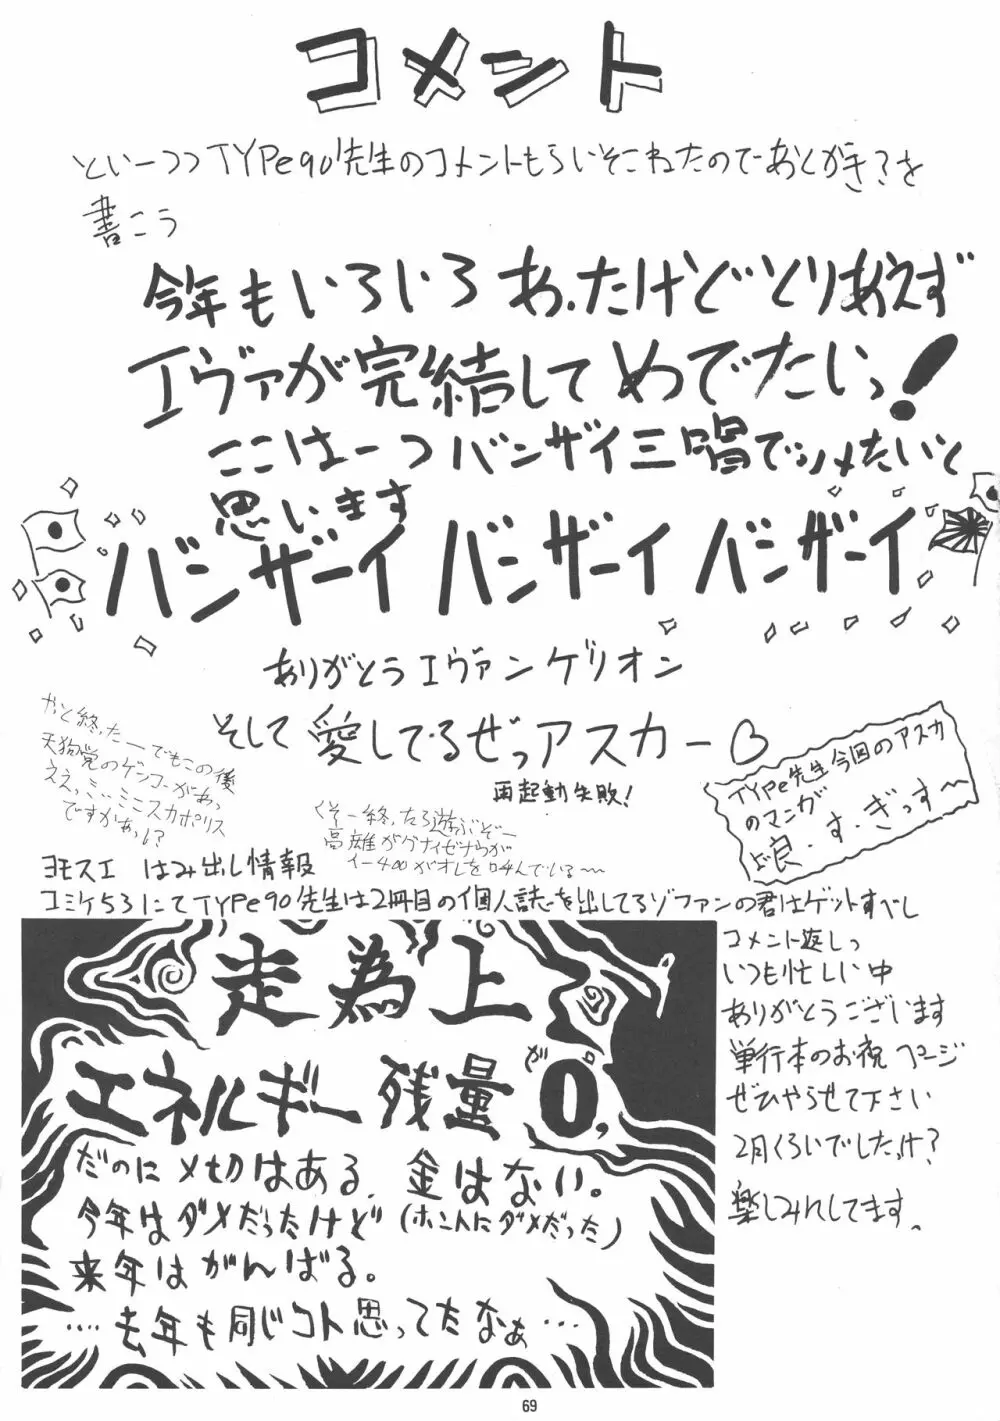 コメント
といーつつTYPe90先生のコメントもらいそこねたのであとがき?を
書こう
今年もいろいろあったけどとりあえず
エヴァが完結してめでたいっ!
ここは一つバンザイ三唱でシメたいと
思います
バンザーイ バンザーイ バンザーイ
ありがとうエヴァンゲリオン
そして愛してるぜっアスカー♡
再起動失敗!
やっと終ったーでもこの後
天狗党のゲンコーがあっ
ええっミ、ミニスカポリス
ですかあっ!?
くそー終ったら遊ぶぞー
TYPe先生今回のアスカ
のマンガ
良・す・ぎっす〜
ヨモスエ はみ出し情報
コミケ53にてTYPe90先生は2冊目の個人誌を出してるゾファンの君はゲットすべし
走為上
エネルギー残量が0、
だのに〆切はある、金はない。
今年はダメだったけど(ホントにダメだった)
来年はがんばる。
‥‥去年も同じコト思ってたなぁ…
コメント返しっ
いつも忙しい中
ありがとうございます
単行本のお祝ページ
ぜひやらせて下さい
2月くらいでしたっけ?
楽しみにしてます。
69